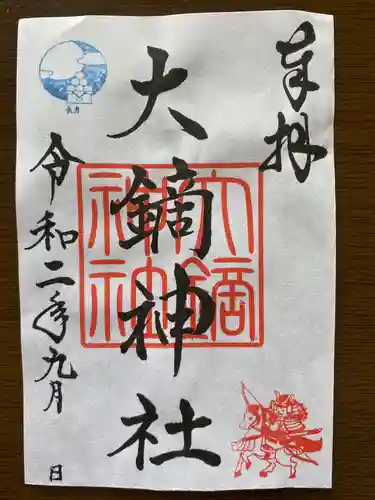 奉拝
大鏑神社
大鏑
神社
令和二年九月 日